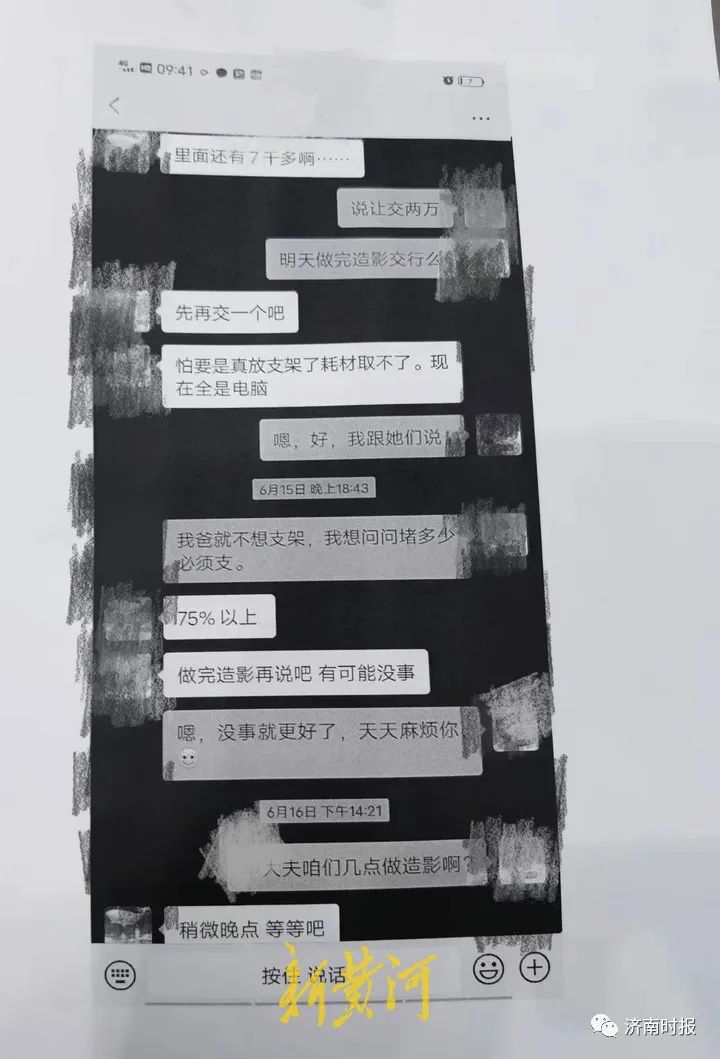 09:41
7
里面还有7千多啊……
说让交两万
明天做完造影交行么
先再交一个吧
怕要是真放支架了耗材取不了。现
在全是电脑
嗯，好，我跟她们说
6月15日 晚上18:43
我爸就不想支架，我想问问堵多少
必须支。
75%以上
做完造影再说吧 有可能没事
嗯，没事就更好了，天天麻烦你，
6月16日 下午14:21
大夫咱们几点做造影啊？
稍微晚点 等等吧
按住 说话
新黄河
济南时报